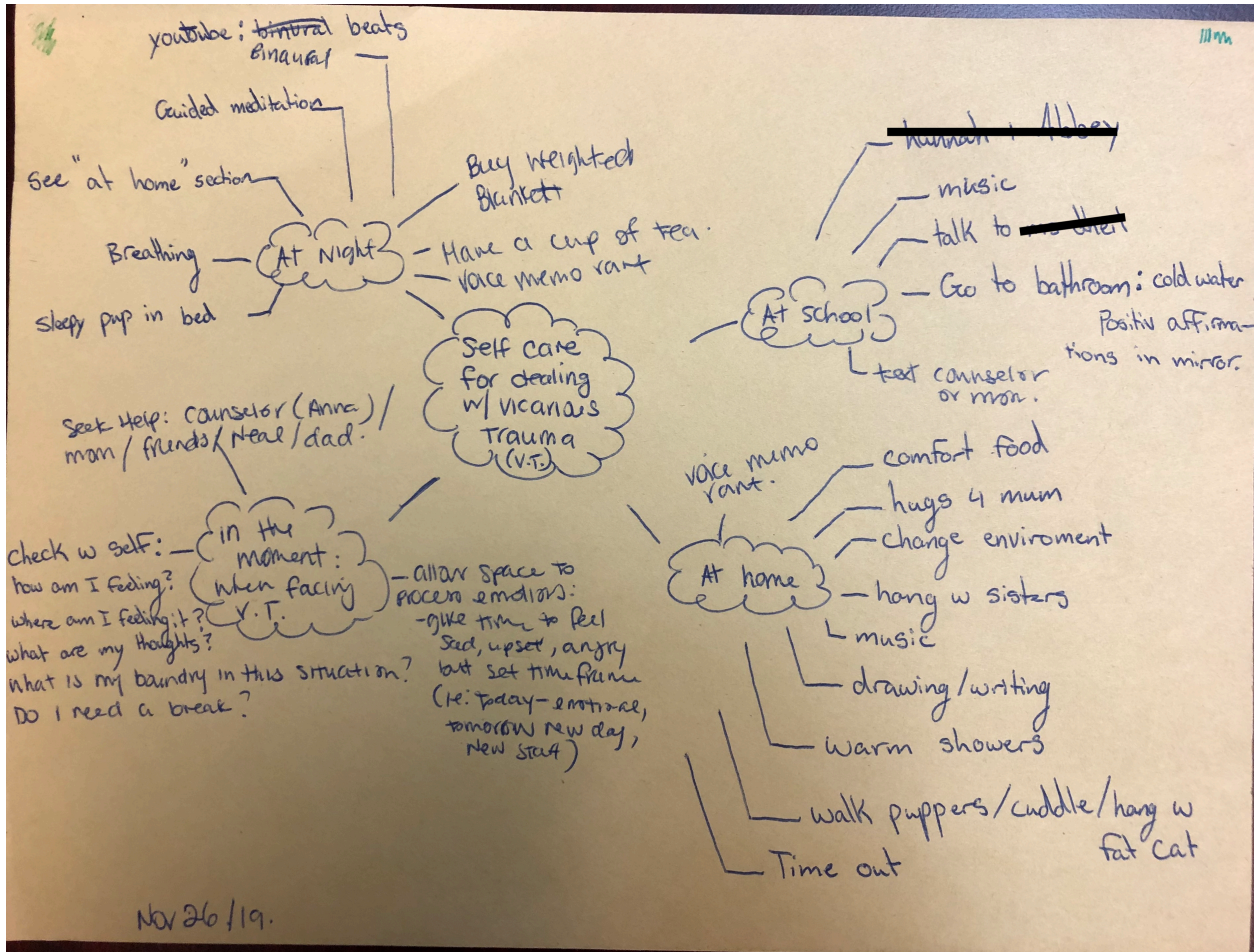 youtube: beats
Binaural
Guided meditation
See "at home" section
Breathing
Sleepy pup in bed
At Night
Buy Weighted
Blankett
Have a cup of tea.
voice memo rant
Self care
for dealing
w/ vicarious
Trauma
(V.T.)
At school
music
talk to
Go to bathroom: cold water
Positiv affirma-
tions in mirror.
text counselor
or mom.
Seek Help: counselor (Anna)/
mom/friends/Neal/dad.
in the
moment:
when facing
V.T.
check w self:
how am I feeling?
where am I feeling it?
what are my thoughts?
what is my boundry in this situation?
Do I need a break?
- allow space to
process emotions:
- give time to feel
sad, upset, angry
but set timeframe
(ie: Today - emotional,
tomorrow new day,
New start)
At home
voice memo
rant.
comfort food
hugs 4 mum
change enviroment
hang w sisters
music
drawing/writing
warm showers
walk puppers/cuddle/hang w
fat cat
Time out
Nov 26/19.